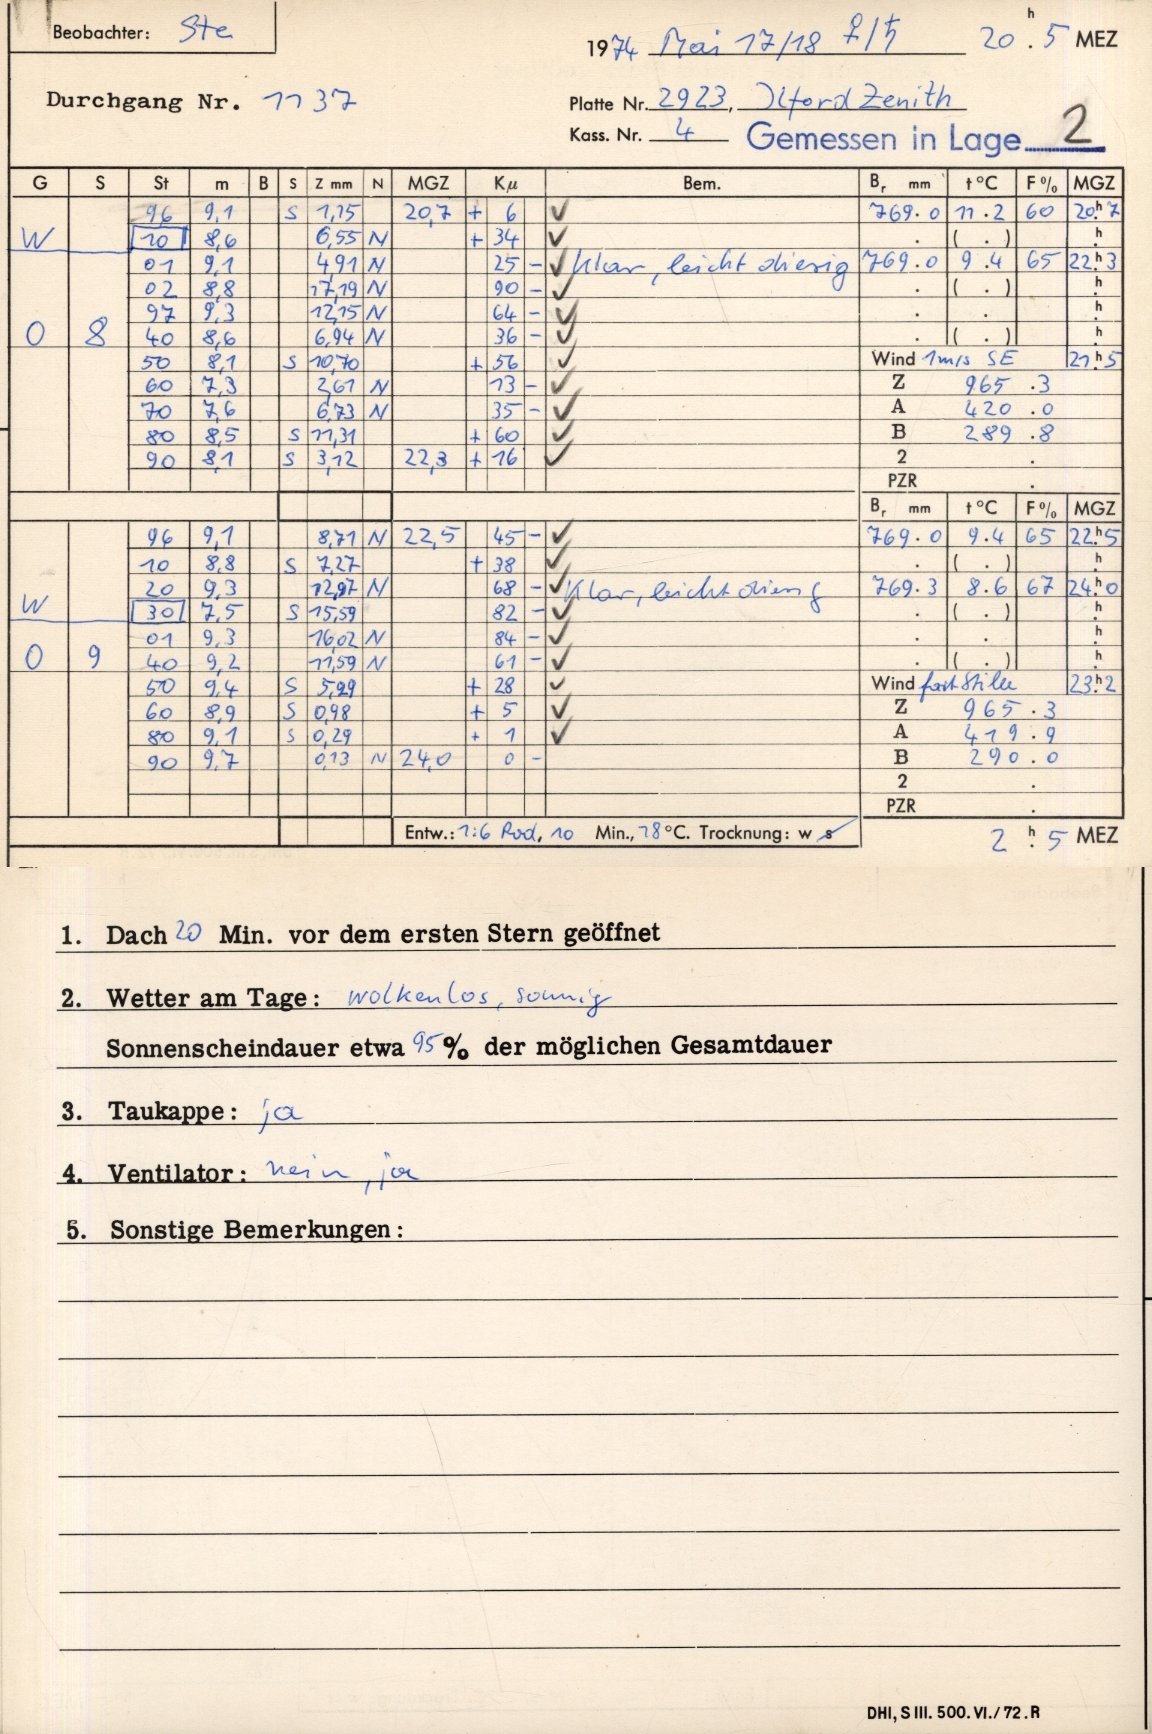 Beobachter: Ste
1974 Mai 17/18 ♀/♄ 20 h . 5 MEZ
Durchgang Nr. 1137
Platte Nr. 2923, Ilford Zenith
Kass. Nr. 4 Gemessen in Lage 2
G S St m B S Z mm N MGZ Kμ Bem. Br mm t °C F % MGZ
96 9,1 S 1,15 20,7 + 6 ✓ 769.0 11.2 60 20h.7
W 10 8,6 6,55 N + 34 ✓ . ( . ) h.
01 9,1 4,91 N 25 - ✓ Klar, leicht diesig 769.0 9.4 65 22h.3
02 8,8 17,19 N 90 - ✓ . ( . ) h.
97 9,3 12,15 N 64 - ✓ . . h.
0 8 40 8,6 6,94 N 36 - ✓ . ( . ) h.
50 8,1 S 10,70 + 56 ✓ Wind 1m/s SE 21h.5
60 7,3 2,61 N 13 - ✓ Z 965.3
70 7,6 6,73 N 35 - ✓ A 420.0
80 8,5 S 11,31 + 60 ✓ B 289.8
90 8,1 S 3,12 22,3 + 16 ✓ 2 .
PZR .
Br mm t °C F % MGZ
96 9,1 8,71 N 22,5 45 - ✓ 769.0 9.4 65 22h.5
10 8,8 S 7,27 + 38 ✓ . ( . ) h.
20 9,3 12,97 N 68 - ✓ Klar, leicht diesig 769.3 8.6 67 24h.0
W 30 7,5 S 15,59 82 - ✓ . ( . ) h.
01 9,3 16,02 N 84 - ✓ . . h.
0 9 40 9,2 11,59 N 61 - ✓ . ( . ) h.
50 9,4 S 5,29 + 28 ✓ Wind fast Stille 23h.2
60 8,9 S 0,98 + 5 ✓ Z 965.3
80 9,1 S 0,29 + 1 ✓ A 419.9
90 9,7 0,13 N 24,0 0 - B 290.0
2 .
PZR .
Entw.: 1:6 Rod, 10 Min., 18 °C. Trocknung: w s 2 h . 5 MEZ
1. Dach 20 Min. vor dem ersten Stern geöffnet
2. Wetter am Tage: wolkenlos, sonnig
Sonnenscheindauer etwa 95 % der möglichen Gesamtdauer
3. Taukappe: ja
4. Ventilator: nein, ja
5. Sonstige Bemerkungen:
DHI, S III. 500. VI. / 72. R